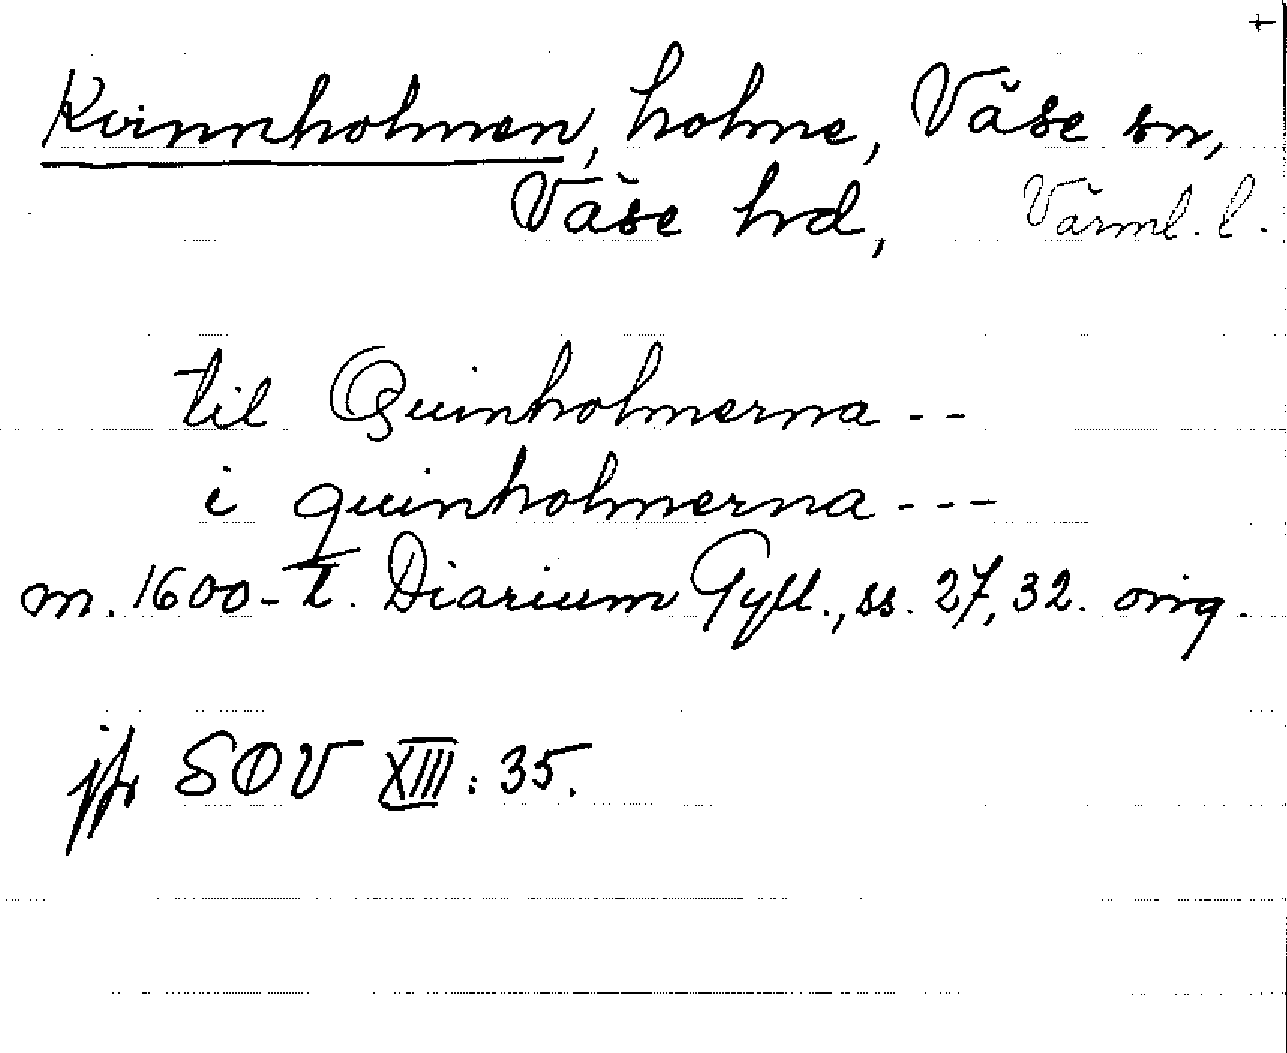 +
Kvinnholmen, holme, Väse sn,
Väse hd, Värml. l.
til Quinholmerna --
i quinholmerna ---
m. 1600-t. Diarium Gyll., ss. 27, 32. orig.
jfr SOV XIII: 35.